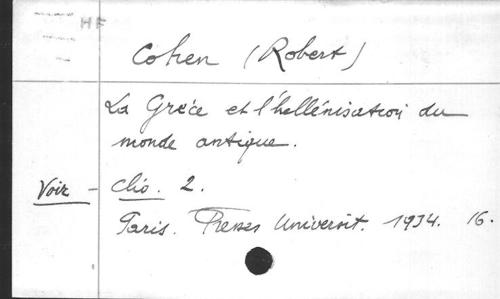 HF
Cohen (Robert)
La Grèce et l'hellénisation du
monde antique.
Voir - Clio. 2.
Paris. Presses Universit. 1934. 16.